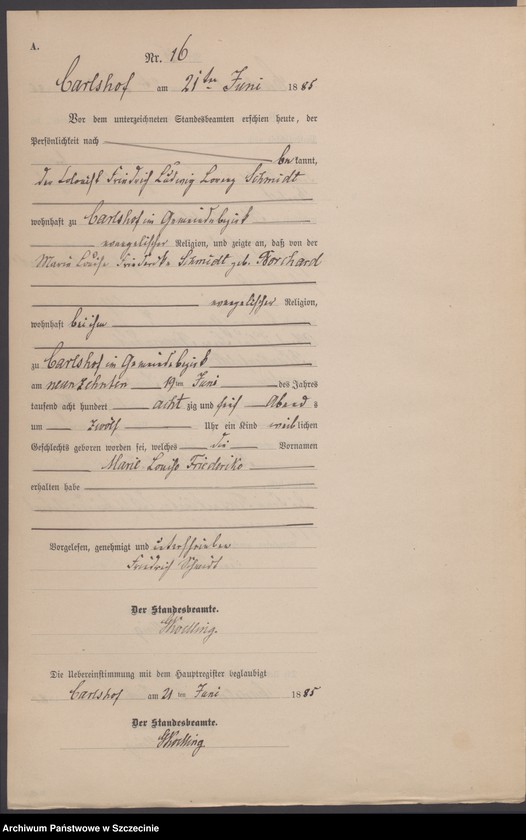 A.
Nr. 16
Carlshof am 21ten Juni 1885
Vor dem unterzeichneten Standesbeamten erschien heute, der
Persönlichkeit nach
bekannt,
der Colonist Friedrich Ludwig Lorenz Schmidt
wohnhaft zu Carlshof im Gemeindebezirk
evangelischer Religion, und zeigte an, daß von der
Marie Louise Friederike Schmidt geb. Borchard
evangelischer Religion,
wohnhaft bei ihm
zu Carlshof im Gemeindebezirk
am neunzehnten 19ten Juni des Jahres
tausend acht hundert achtzig und fünf Abends
um zwölf Uhr ein Kind weiblichen
Geschlechts geboren worden sei, welches die Vornamen
Marie Louise Friederike
erhalten habe
Vorgelesen, genehmigt und unterschrieben
Friedrich Schmidt
Der Standesbeamte.
Die Uebereinstimmung mit dem Hauptregister beglaubigt
Carlshof am 21ten Juni 1885
Der Standesbeamte.
Archiwum Państwowe w Szczecinie